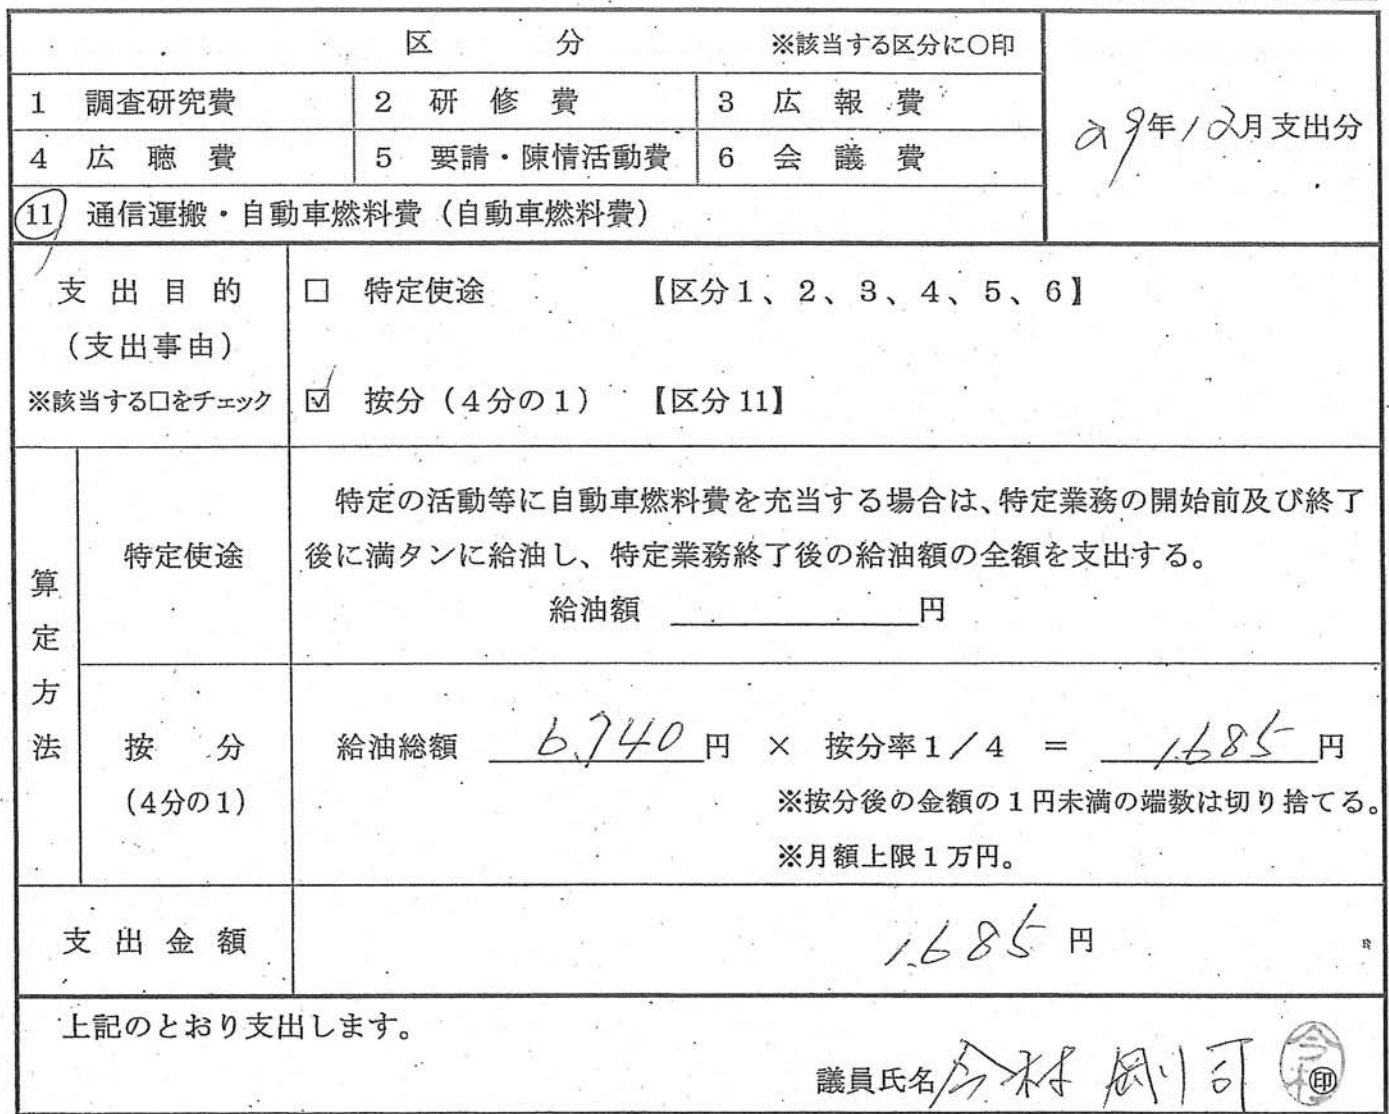 区 分 ※該当する区分に○印
1 調査研究費 2 研修費 3 広報費
29年12月支出分
4 広聴費 5 要請・陳情活動費 6 会議費
11 通信運搬・自動車燃料費（自動車燃料費）
支出目的
（支出事由）
※該当する□をチェック
□ 特定使途 【区分1、2、3、4、5、6】
☑ 按分（4分の1） 【区分11】
算定方法
特定使途
特定の活動等に自動車燃料費を充当する場合は、特定業務の開始前及び終了
後に満タンに給油し、特定業務終了後の給油額の全額を支出する。
給油額 円
按分
（4分の1）
給油総額 6,740円 × 按分率1／4 ＝ 1,685円
※按分後の金額の1円未満の端数は切り捨てる。
※月額上限1万円。
支出金額 1,685円
上記のとおり支出します。
議員氏名 今村 剛司 ㊞
今村